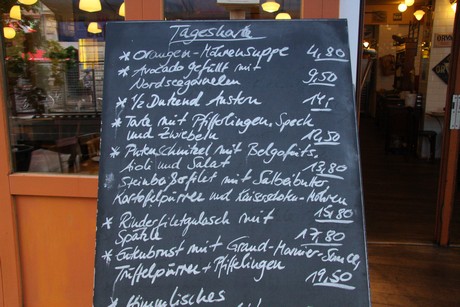 Tageskarte
* Orangen-Möhrensuppe 4,80
* Avocado gefüllt mit
Nordseegarnelen 9,50
* 1/2 Dutzend Austern 14,-
* Tarte mit Pfifferlingen, Speck
und Zwiebeln 12,50
* Putenschnitzel mit
Aioli und Salat 13,80
Steinbeißerfilet mit Salbeibutter
Kartoffelpürree und Kaiserschoten-Möhren
15,80
* Rinderfiletgulasch mit
Spätzle 17,80
* Entenbrust mit Grand-Marnier-Sauce,
Trüffelpürree + Pfifferlingen
19,50
* Himmlisches